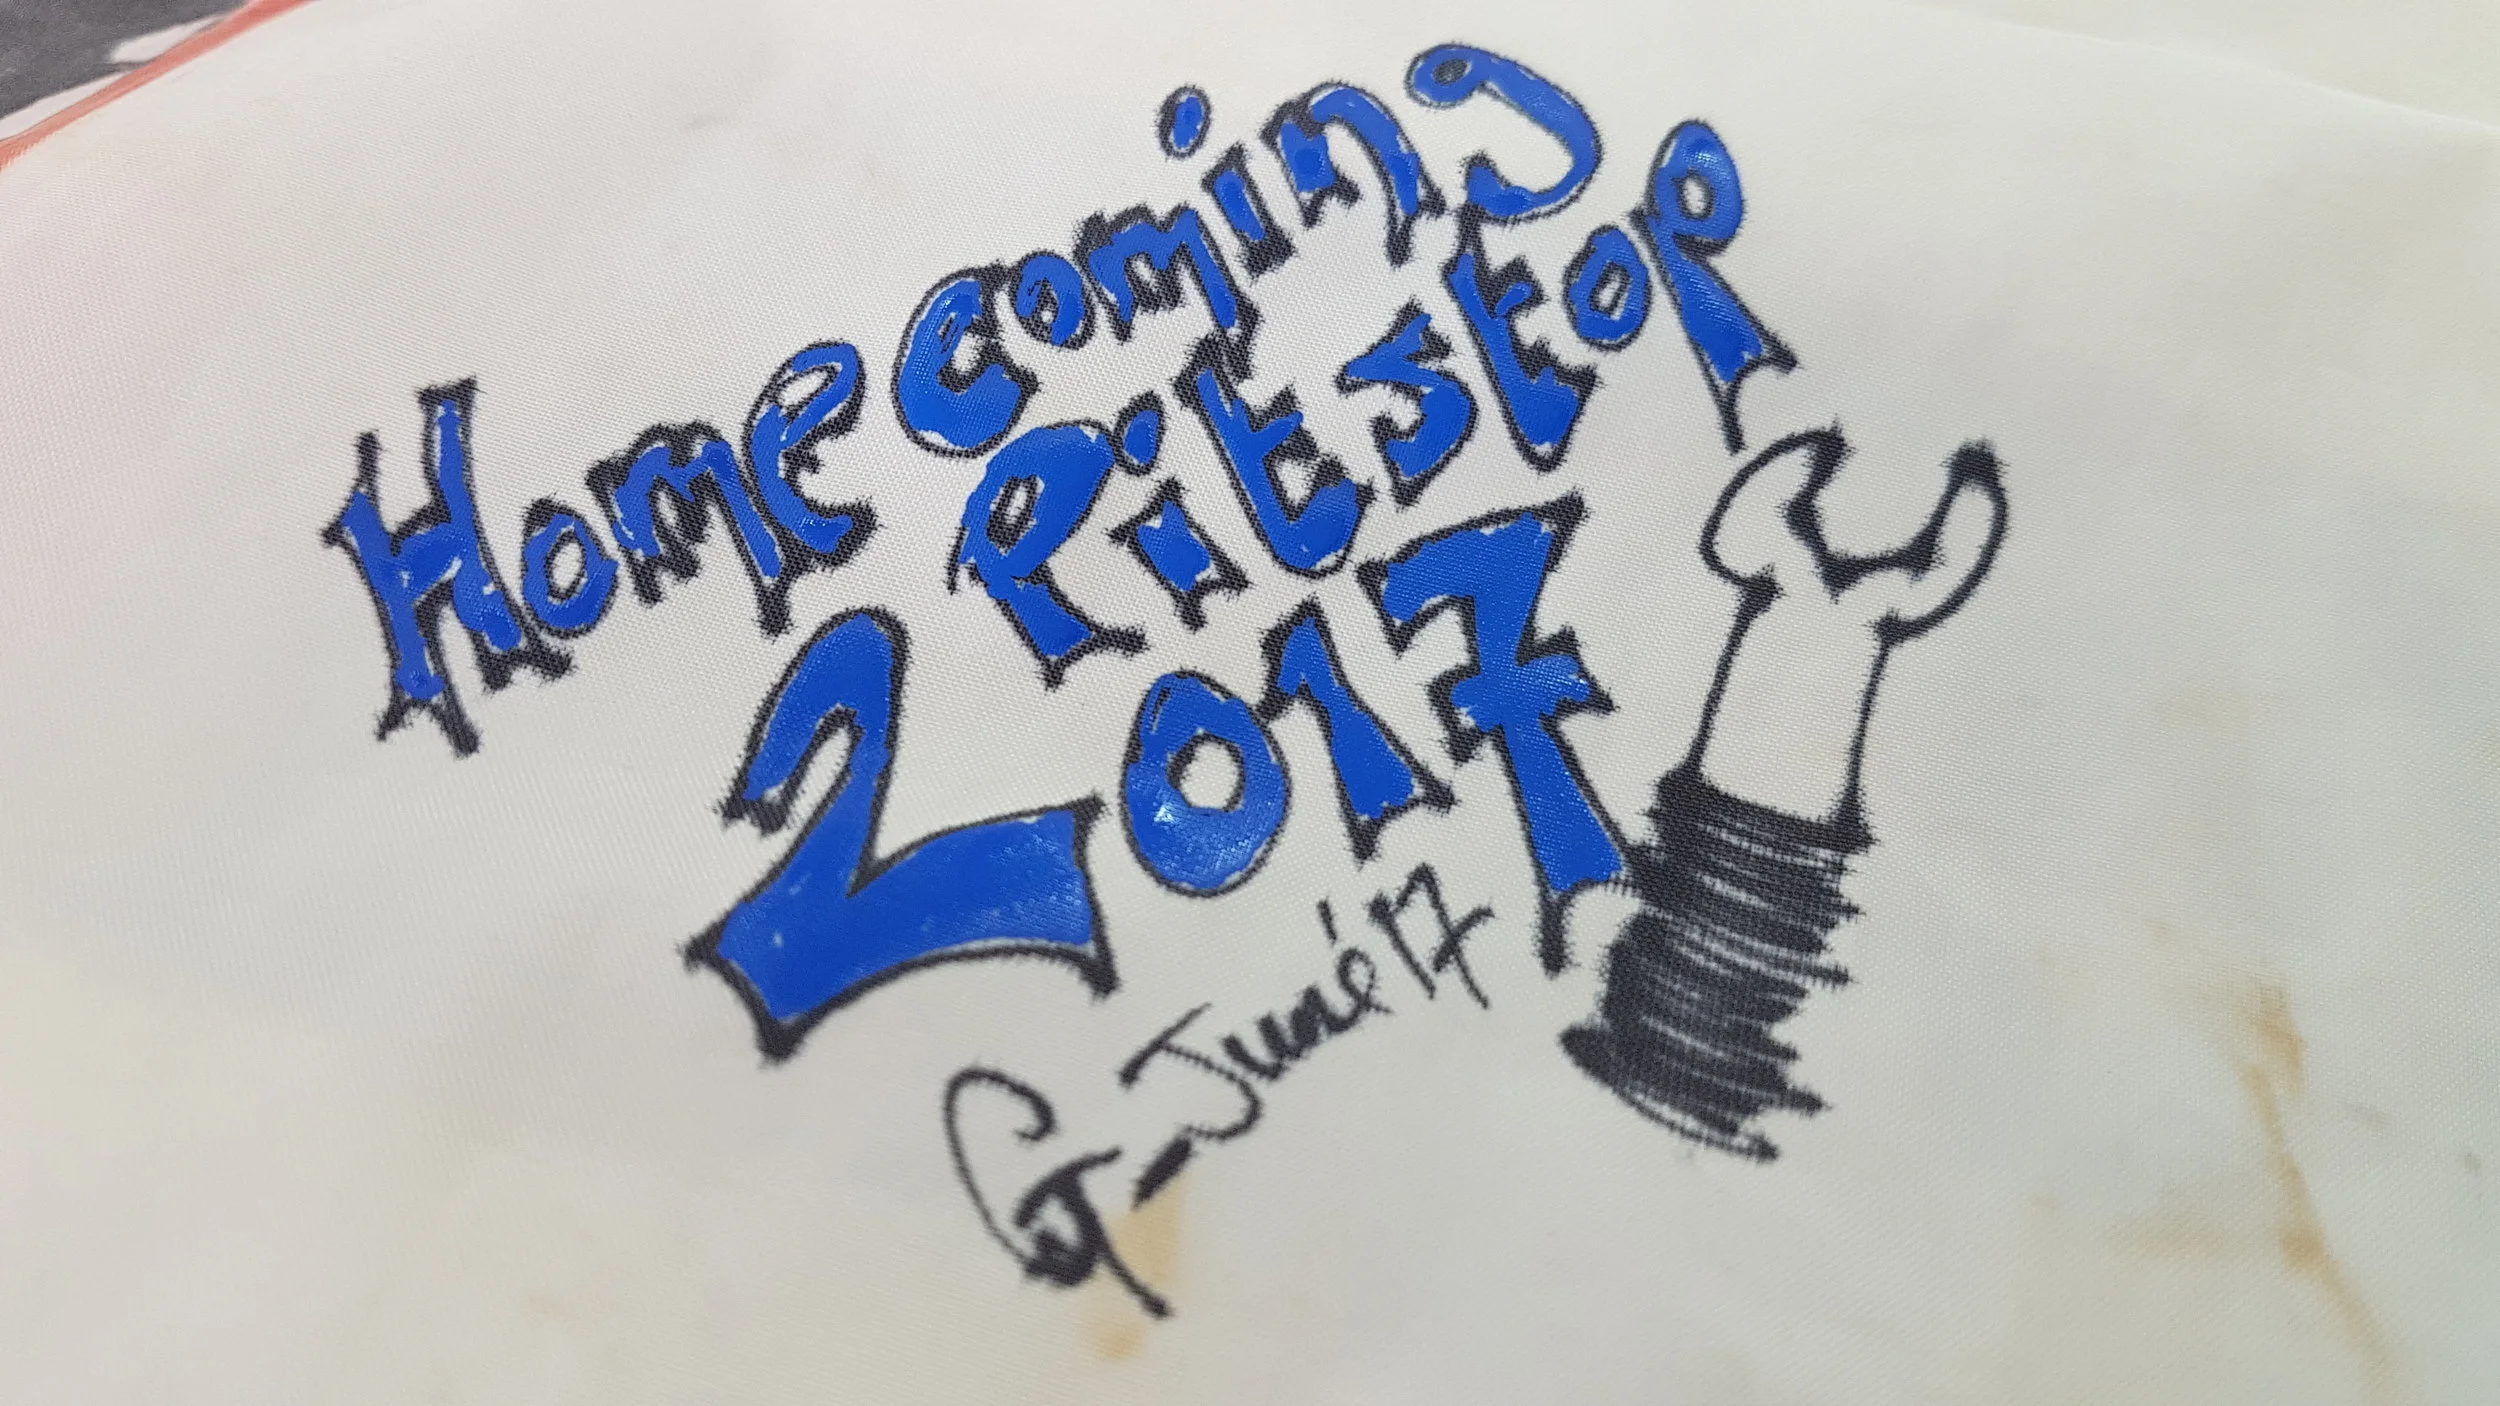 Homecoming
Pitstop
2017
G-Juné17